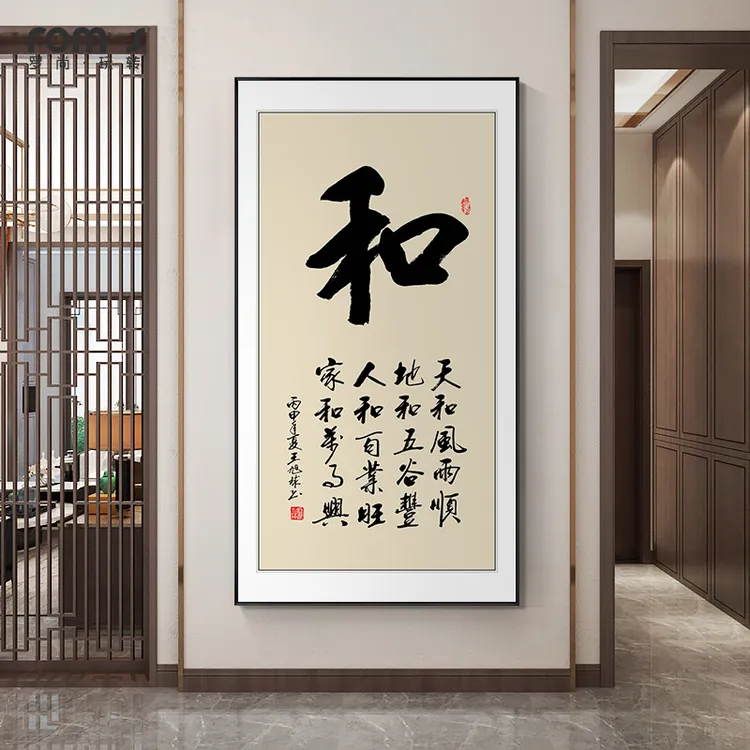 和
天和風雨順
地和五谷豐
人和百業旺
家和萬事興
丙申年夏王旭书